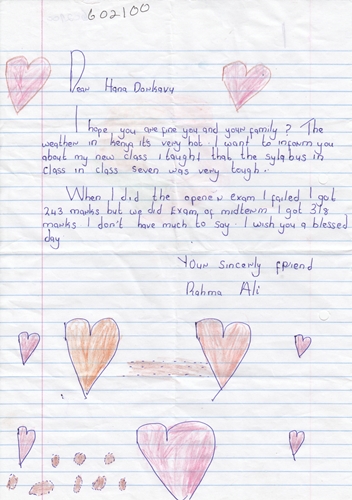 602100
Dear Hana Donkavy
I hope you are fine you and your family? The
weather in kenya it's very hot. I want to inform you
about my new class I taught that the sylabus in
class in class seven was very tough.
When I did the opener exam I failed I got
243 marks but we did Exam of midterm I got 378
marks I don't have much to say. I wish you a blessed
day
Your sincerly friend
Rahma Ali